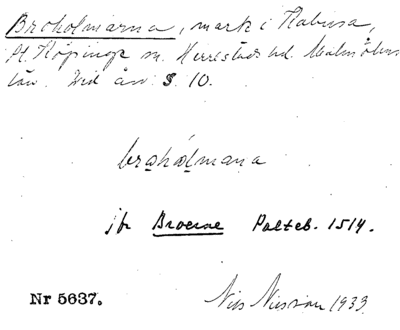 Broholmarna, mark i Kabusa,
St. Köpinge sn. Herrestads hd. Malmöhus
län. Vid ån. S. 10.
brohólmana
jfr Broerne Palteb. 1514.
Nr 5637.
Nils Nilsson 1933